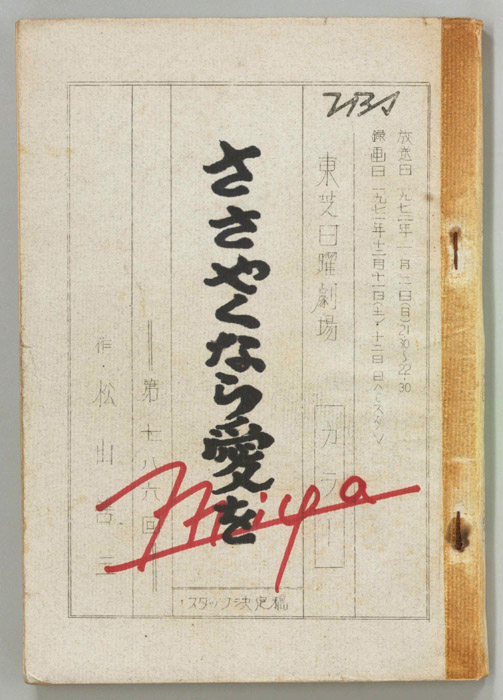 TBS
放送日 一九七二年一月二日(日)21:30~22:30
録画日 一九七一年十二月十一日(土)・十二日(日)
東芝日曜劇場
カラー
ささやくなら愛を
第七八六回
作・松山善三
スタッフ決定稿